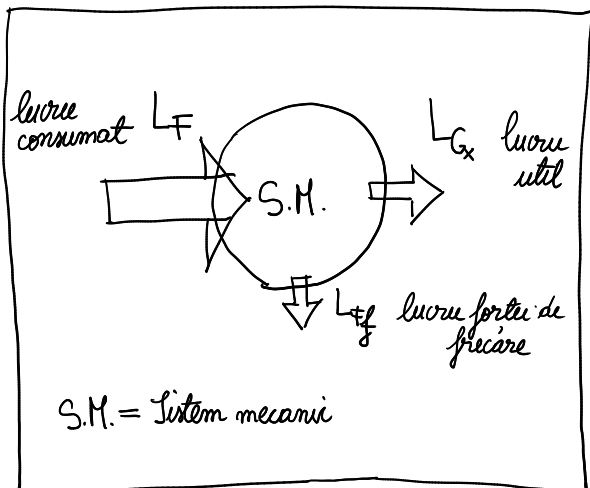 lucru
consumat L_F
L_Gx lucru
util
S.M.
L_Ff lucru forței de
frecăre
S.M. = Sistem mecanic